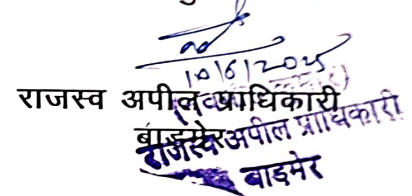 10/6/2025
राजस्व अपील प्राधिकारी
बाड़मेर
राजस्व अपील प्राधिकारी
बाड़मेर